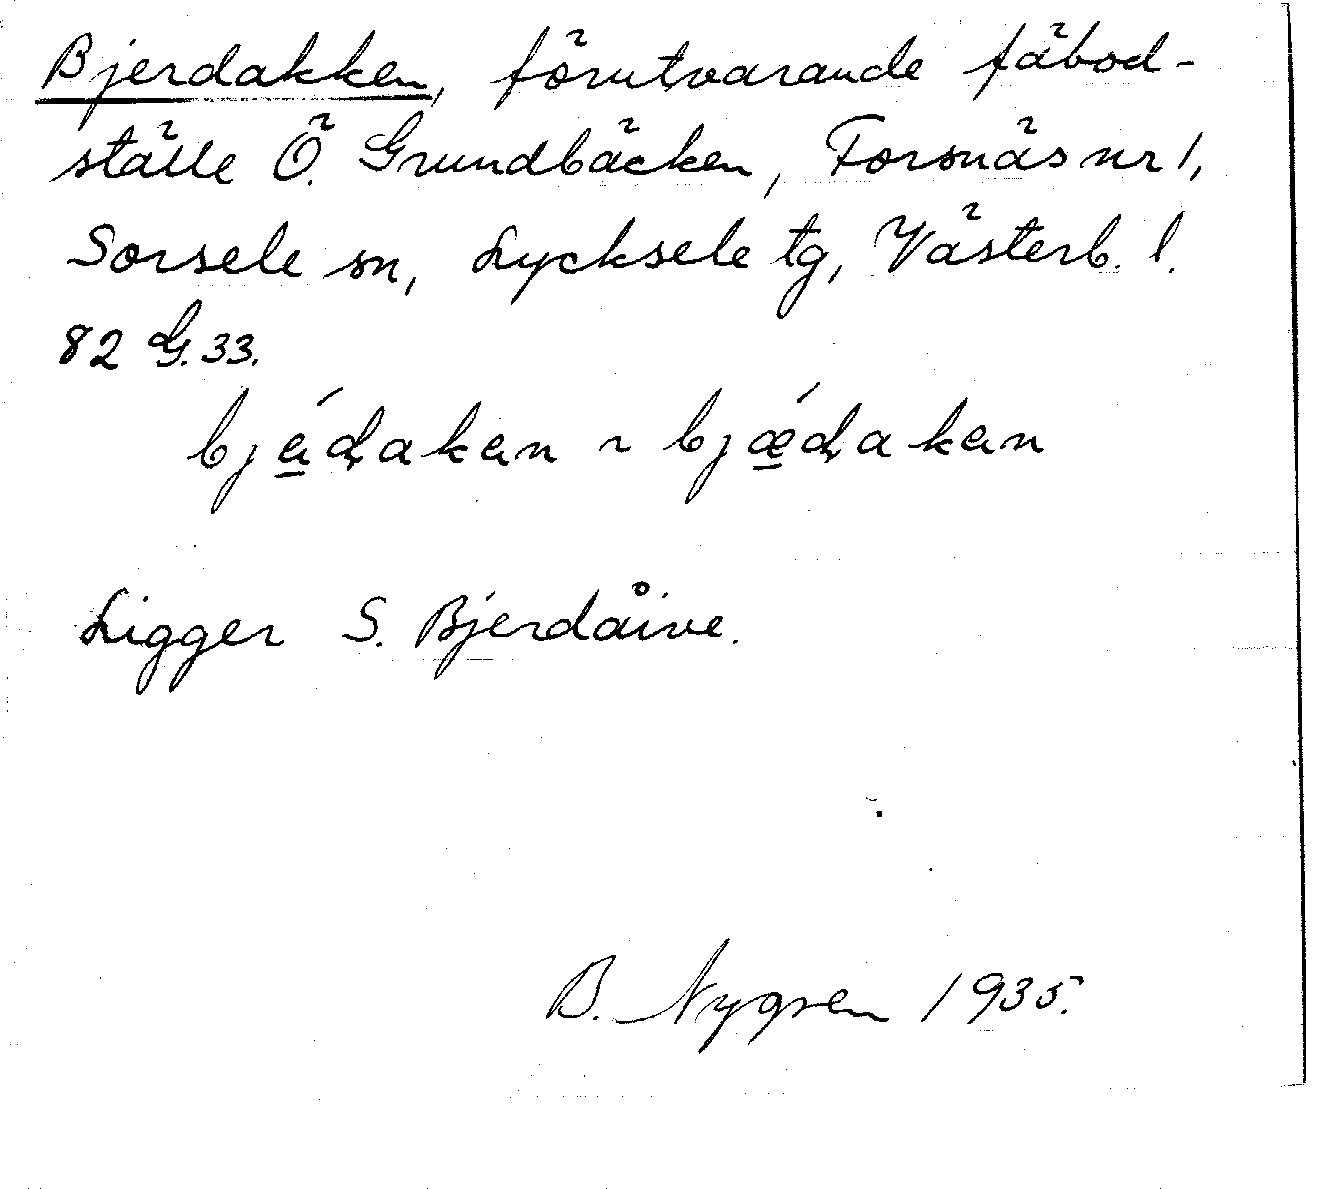 Bjerdakken, förutvarande fäbod-
ställe Ö. Grundbäcken, Forsnäs nr 1,
Sorsele sn, Lycksele tg, Västerb. l.
82 G. 33.
bjéḍaken ~ bjǽḍaken
Ligger S. Bjerdåive.
B. Nygren 1935.